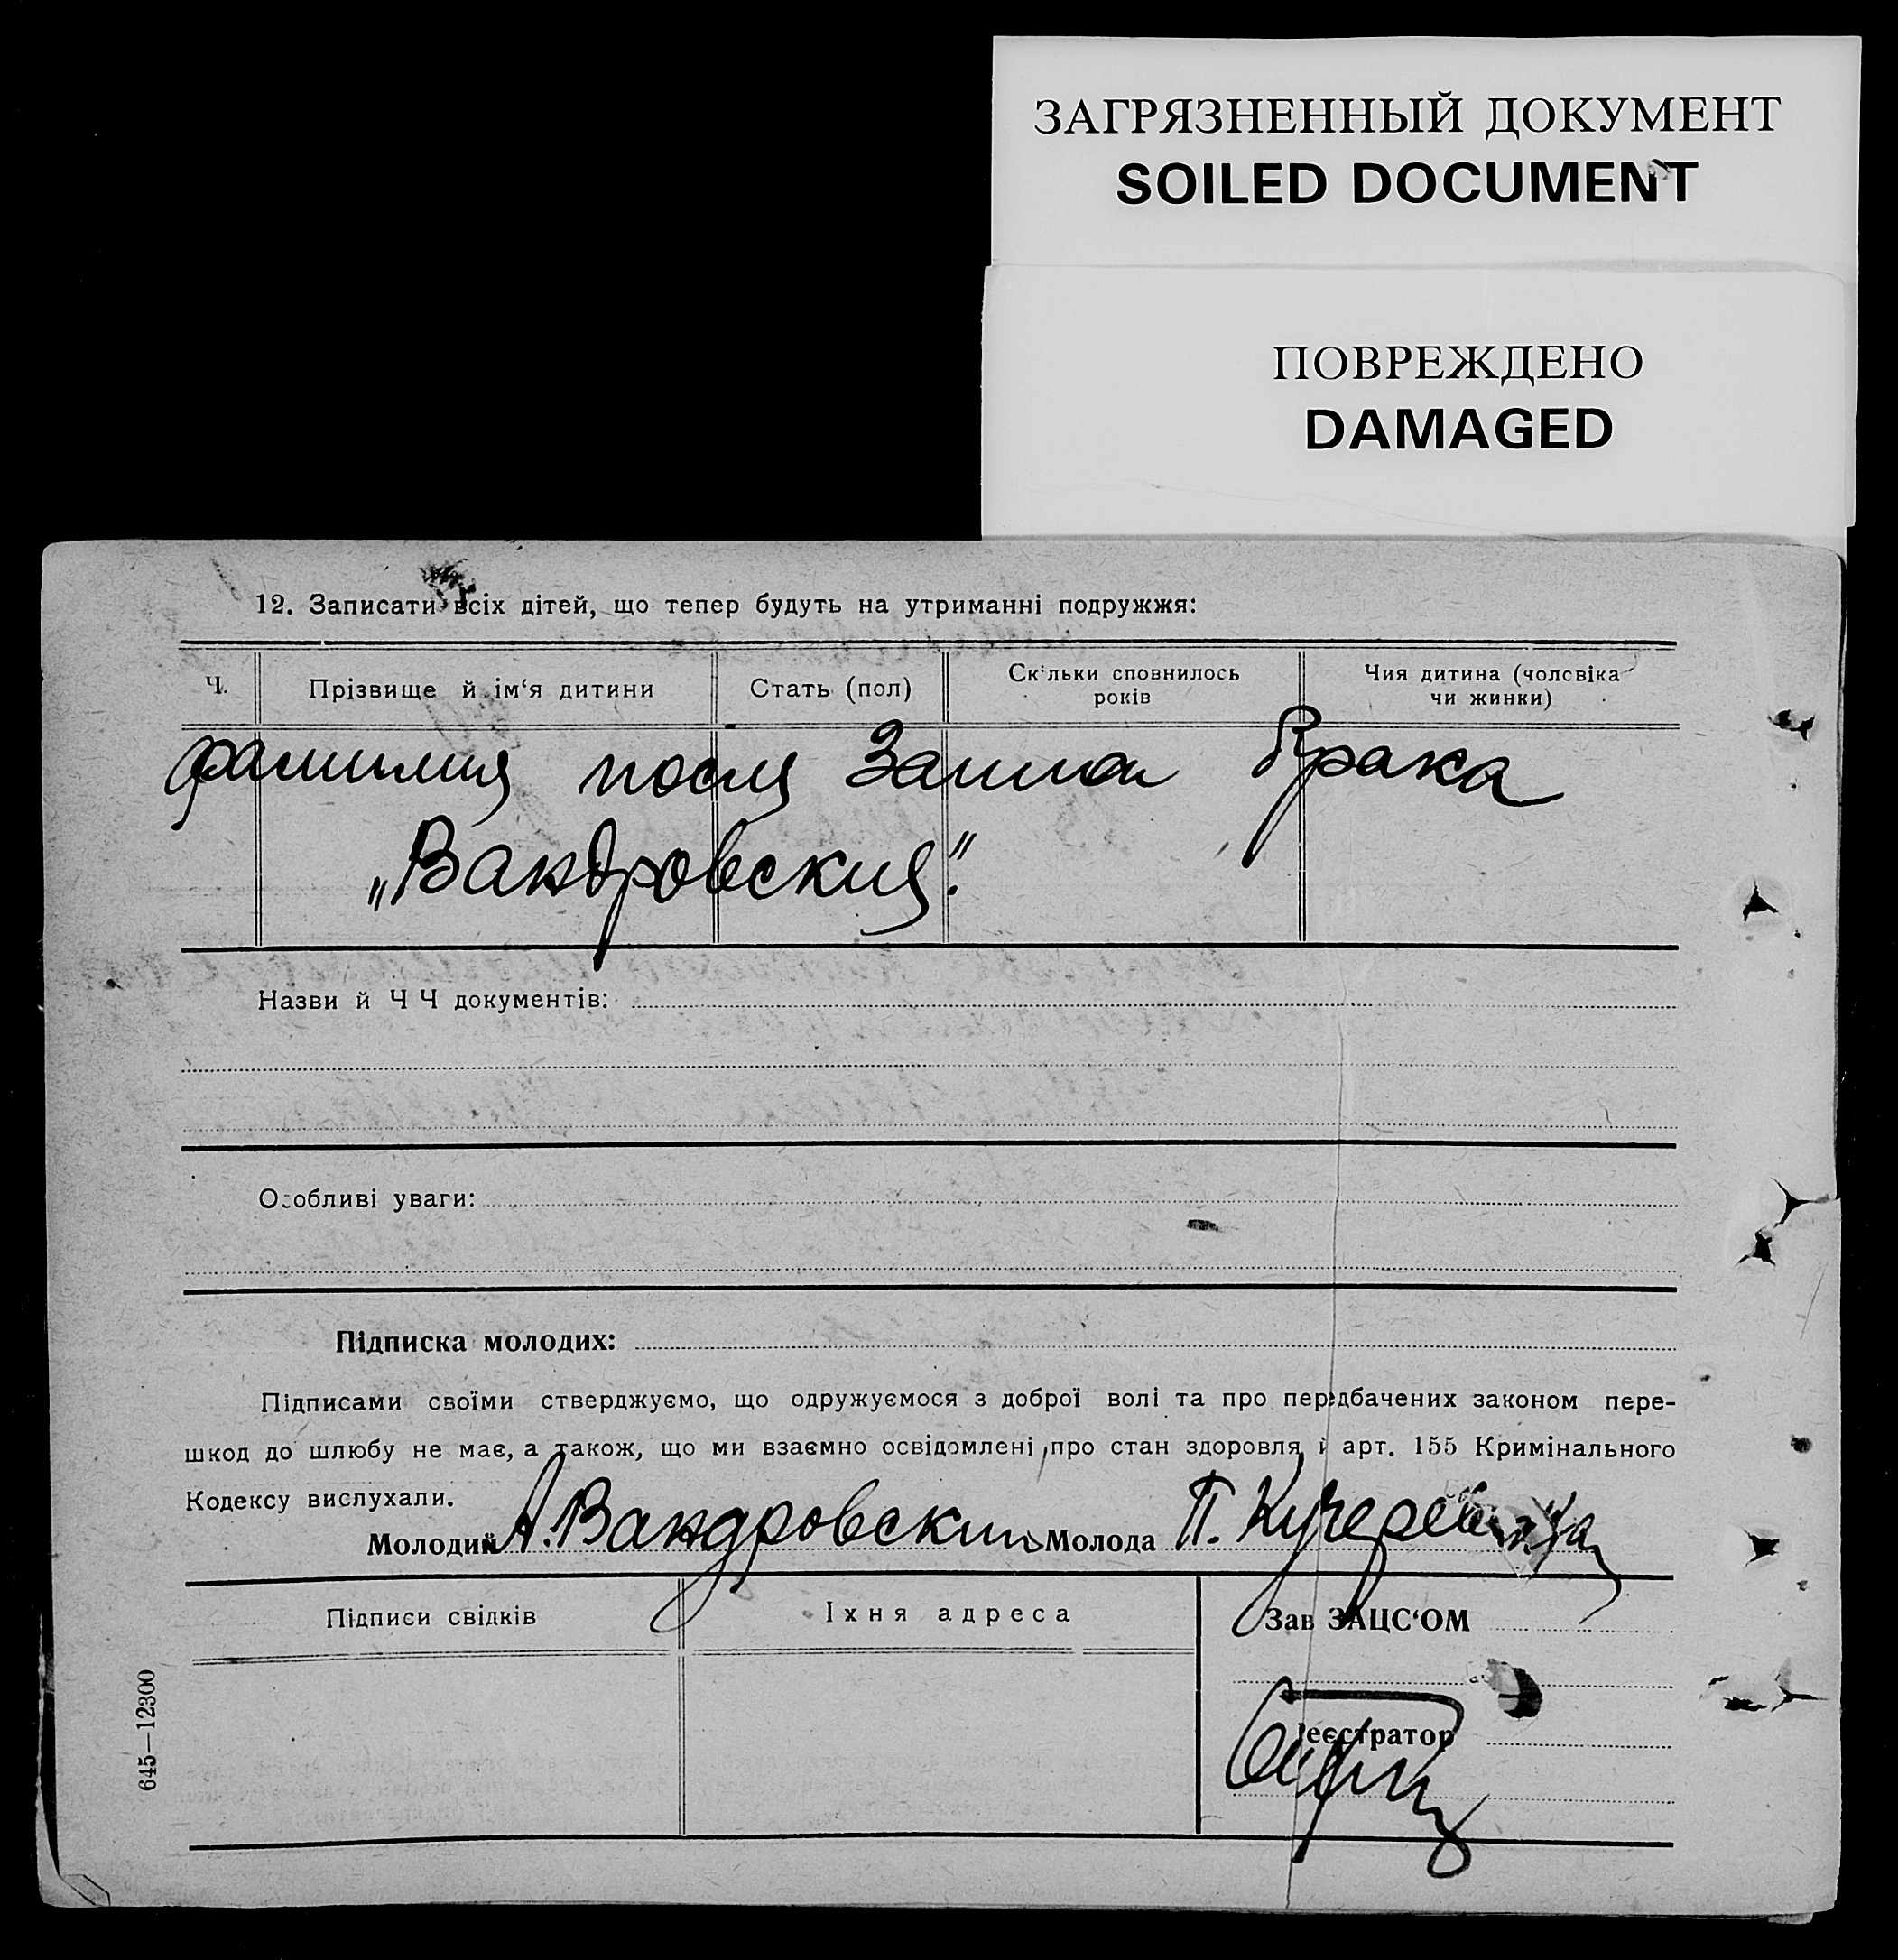 ЗАГРЯЗНЕННЫЙ ДОКУМЕНТ
SOILED DOCUMENT
ПОВРЕЖДЕНО
DAMAGED
12. Записати всіх дітей, що тепер будуть на утриманні подружжя:
Ч. Прізвище й ім‘я дитини Стать (пол) Скільки сповнилось років Чия дитина (чоловіка чи жинки)
фамилия после записи брака
„Вандровский".
Назви й Ч Ч документів:
Особливі уваги:
Підписка молодих:
Підписами своїми стверджуємо, що одружуємося з доброї волі та про передбачених законом пере-
шкод до шлюбу не має, а також, що ми взаємно освідомлені про стан здоровля й арт. 155 Кримінального
Кодексу вислухали.
Молодий А. Вандровский Молода П.
Підписи свідків Їхня адреса Зав ЗАЦС‘ОМ
Реєстратор
645—12300